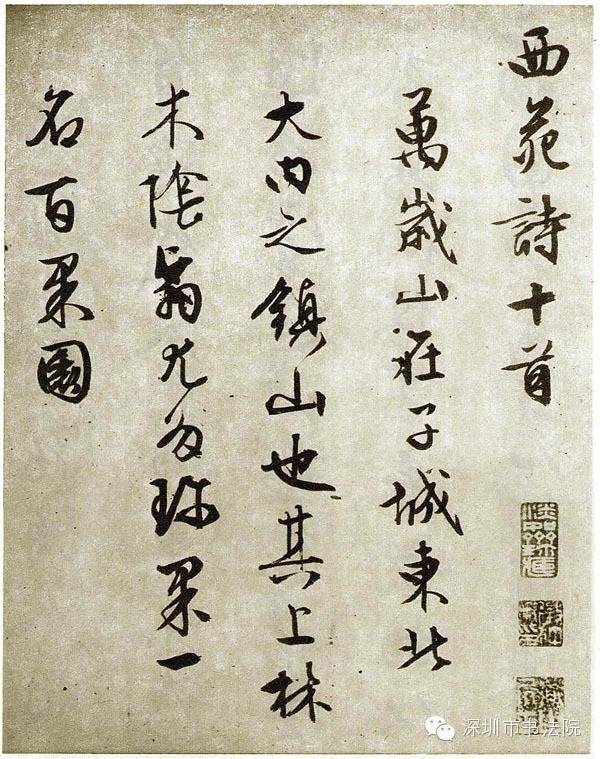 西苑詩十首
萬歲山在子城東北
大内之鎮山也其上林
木陰翳尤多珍果一
名百果園
深圳市书法院